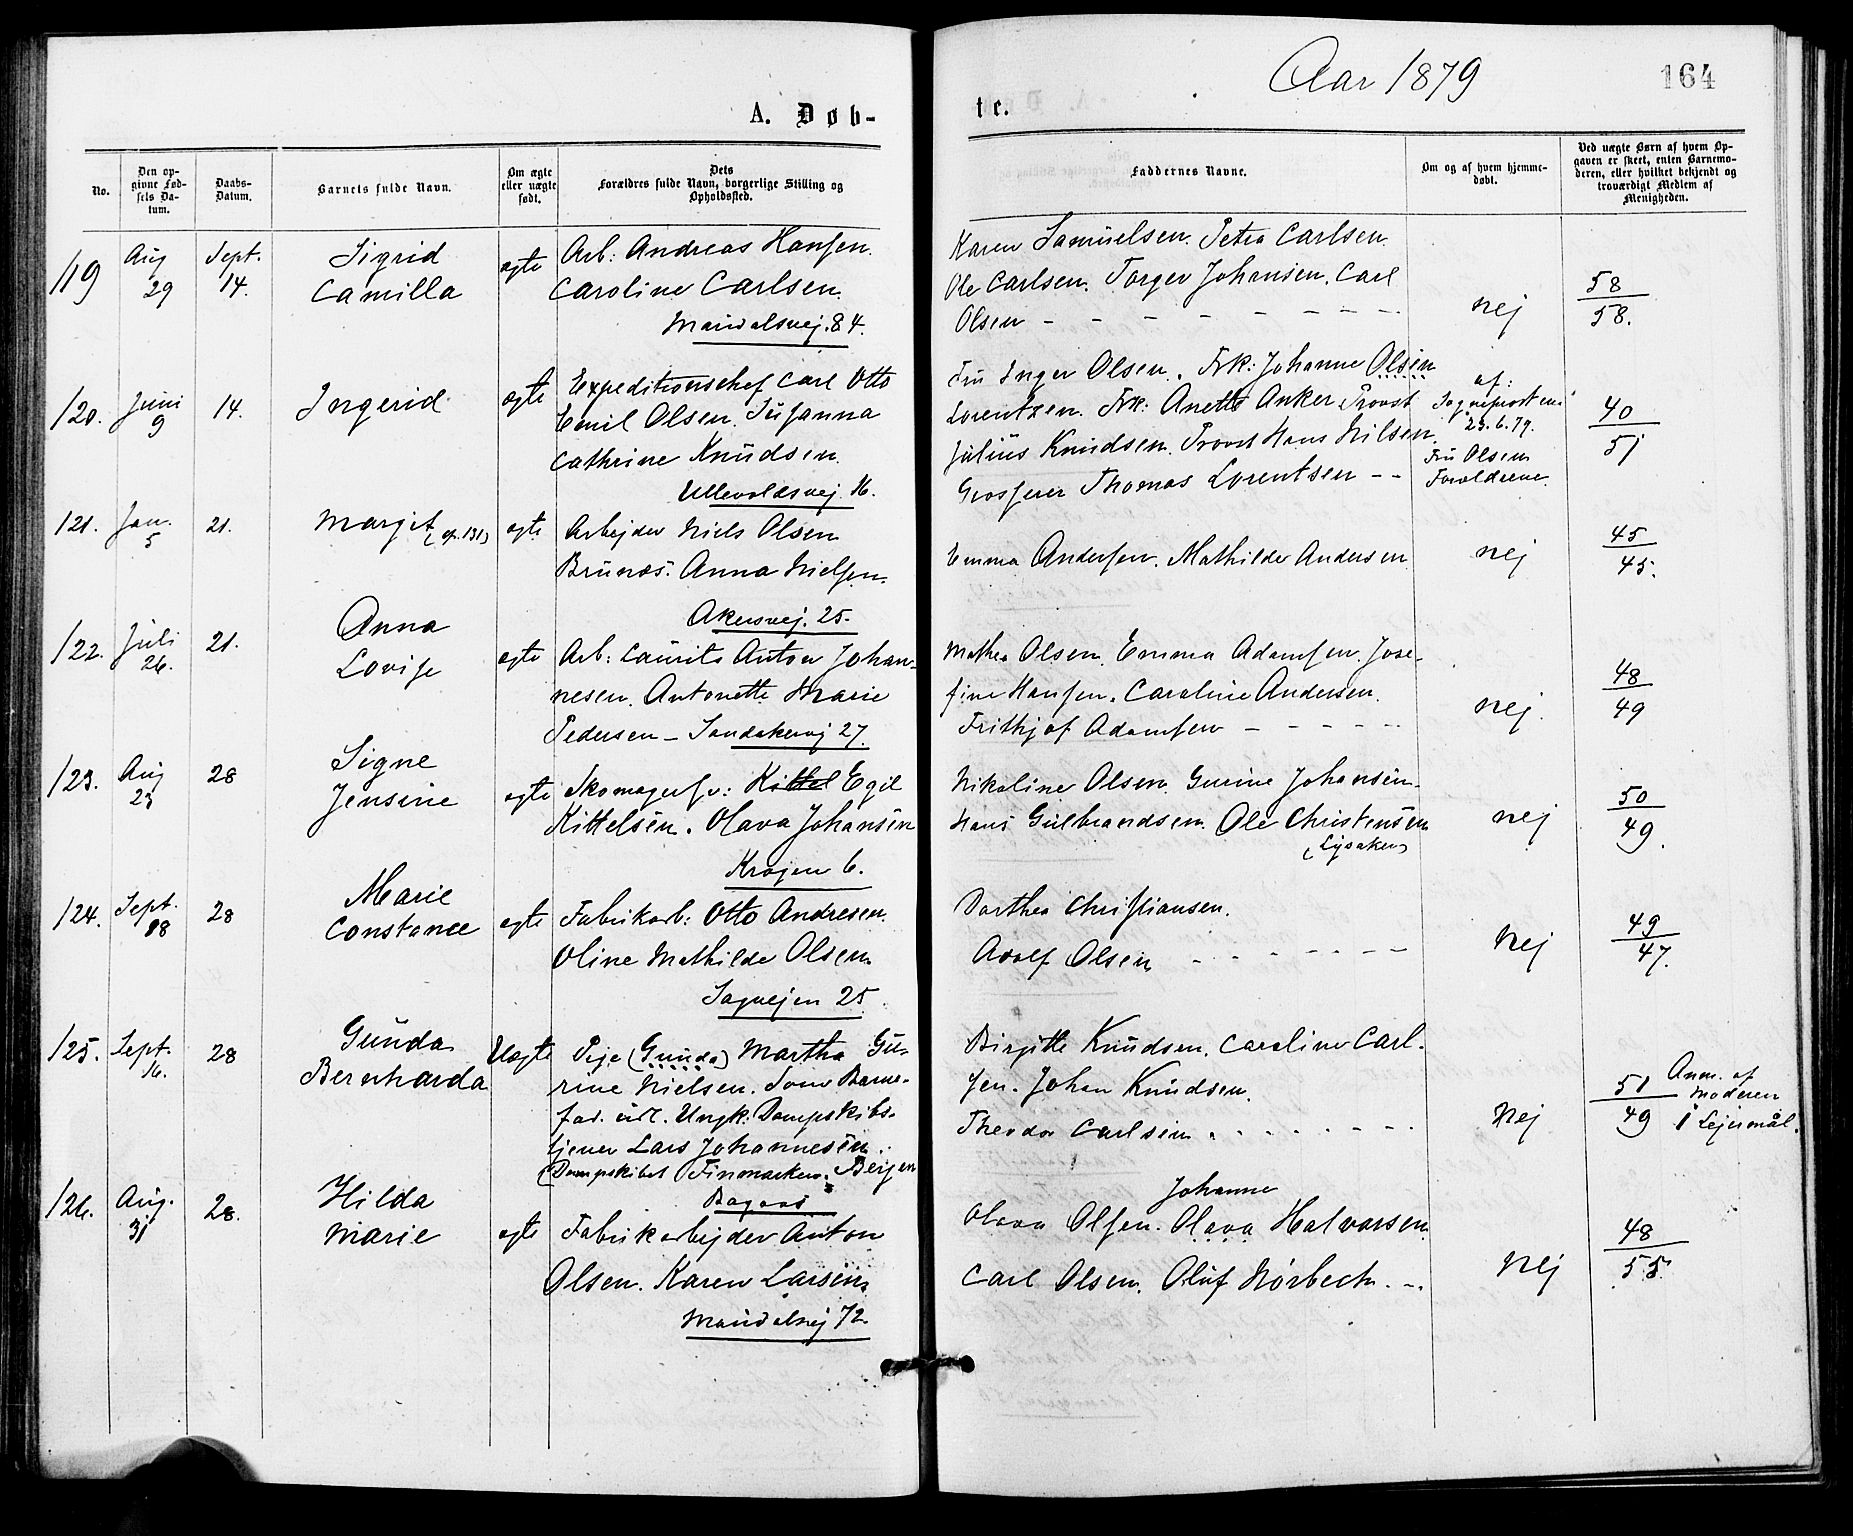 Aar 1879
164
A. Døb-
te.
No.
Den op-
givne Fød-
sels Da-
tum.
Daabs-
Datum.
Barnets fulde Navn.
Om ægte
eller uægte
født.
Dets
Forældres fulde Navn, borgerlige Stilling og
Opholdssted.
Faddernes Navne.
Om og af hvem hjemme-
døbt.
Ved uægte Børn af hvem Op-
gaven er skeet, enten Barnemo-
deren, eller hvilket bekjendt og
troværdigt Medlem af
Menigheden.
119
Aug
29
Sept.
14.
Sigrid
Camilla
ægte
Arb: Andreas Hansen.
Caroline Carlsen.
Maridalsvej. 84.
Karen Samuelsen. Petra Carlsen.
Ole Carlsen. Torger Johansen. Carl
Olsen - - - - - - - -
nej
58
58.
120.
Juni
9
14.
Ingerid
ægte
Expeditionschef Carl Otto
Emil Olsen. Susanna
Cathrine Knudsen.
Ullevoldsvej 16.
Fru Inger Olsen. Frk: Johanne Olsen
Lorentzen. Frk: Anette Anker Provst
Julius Knudsen. Provst Hans Nilsen
Grosserer Thomas Lorentsen - -
af:
Sogneprosten
23.6.79.
Fru Olsen
Forældrene.
40
51
121.
Jan.
5
21.
Margit (cf. 131)
ægte
Arbejder Niels Olsen
Brunæs. Anna Nielsen.
Akersvej. 25.
Emma Andersen. Mathilde Andersen
nej
45
45.
122.
Juli
26.
21.
Anna
Lovise
ægte
Arb: Laurits Anton Johan-
nesen. Antonette Marie
Pedersen - Sandakervej 27.
Mathea Olsen. Emma Adamsen. Jose-
fine Hansen. Caroline Andersen.
Frithjof Adamsen - - - - -
nej.
48
49
123.
Aug
23
28
Signe
Jensine
ægte
Skomagersv: Kittel Egil
Kittelsen. Olava Johansen
Krogen 6.
Nikoline Olsen. Gurine Johansen.
Hans Gulbrandsen. Ole Christensen
(Lysaker)
nej
50
49.
124.
Sept.
18
28
Marie
Constance
ægte
Fabrikarb: Otto Andresen.
Oline Mathilde Olsen.
Sagvejen 25.
Dorthea Christiansen.
Adolf Olsen - - - - - - -
nej
49
47.
125.
Sept.
16.
28
Gunda
Bernharda
Uægte
Pige (Gunda) Martha Gu-
rine Nielsen. Som Barne-
fad. udl. Ungk: Dampskibs-
tjener Lars Johannesen.
(Dampskibet Finmarken. Bergen
Bagaas
Birgitte Knudsen. Caroline Carl-
sen. Johan Knudsen.
Theodor Carlsen. - - - - - - -
nej
51
49
Anm. af
Moderen
1 Lejermål.
126.
Aug.
31
28.
Hilda
Marie
ægte
Fabrikarbejder Anton
Olsen. Karen Larsen.
Maridalsvej 72.
Johanne
Olava Olsen. Olava Halvorsen
Carl Olsen. Oluf Nörbech. -.
nej
48
55.